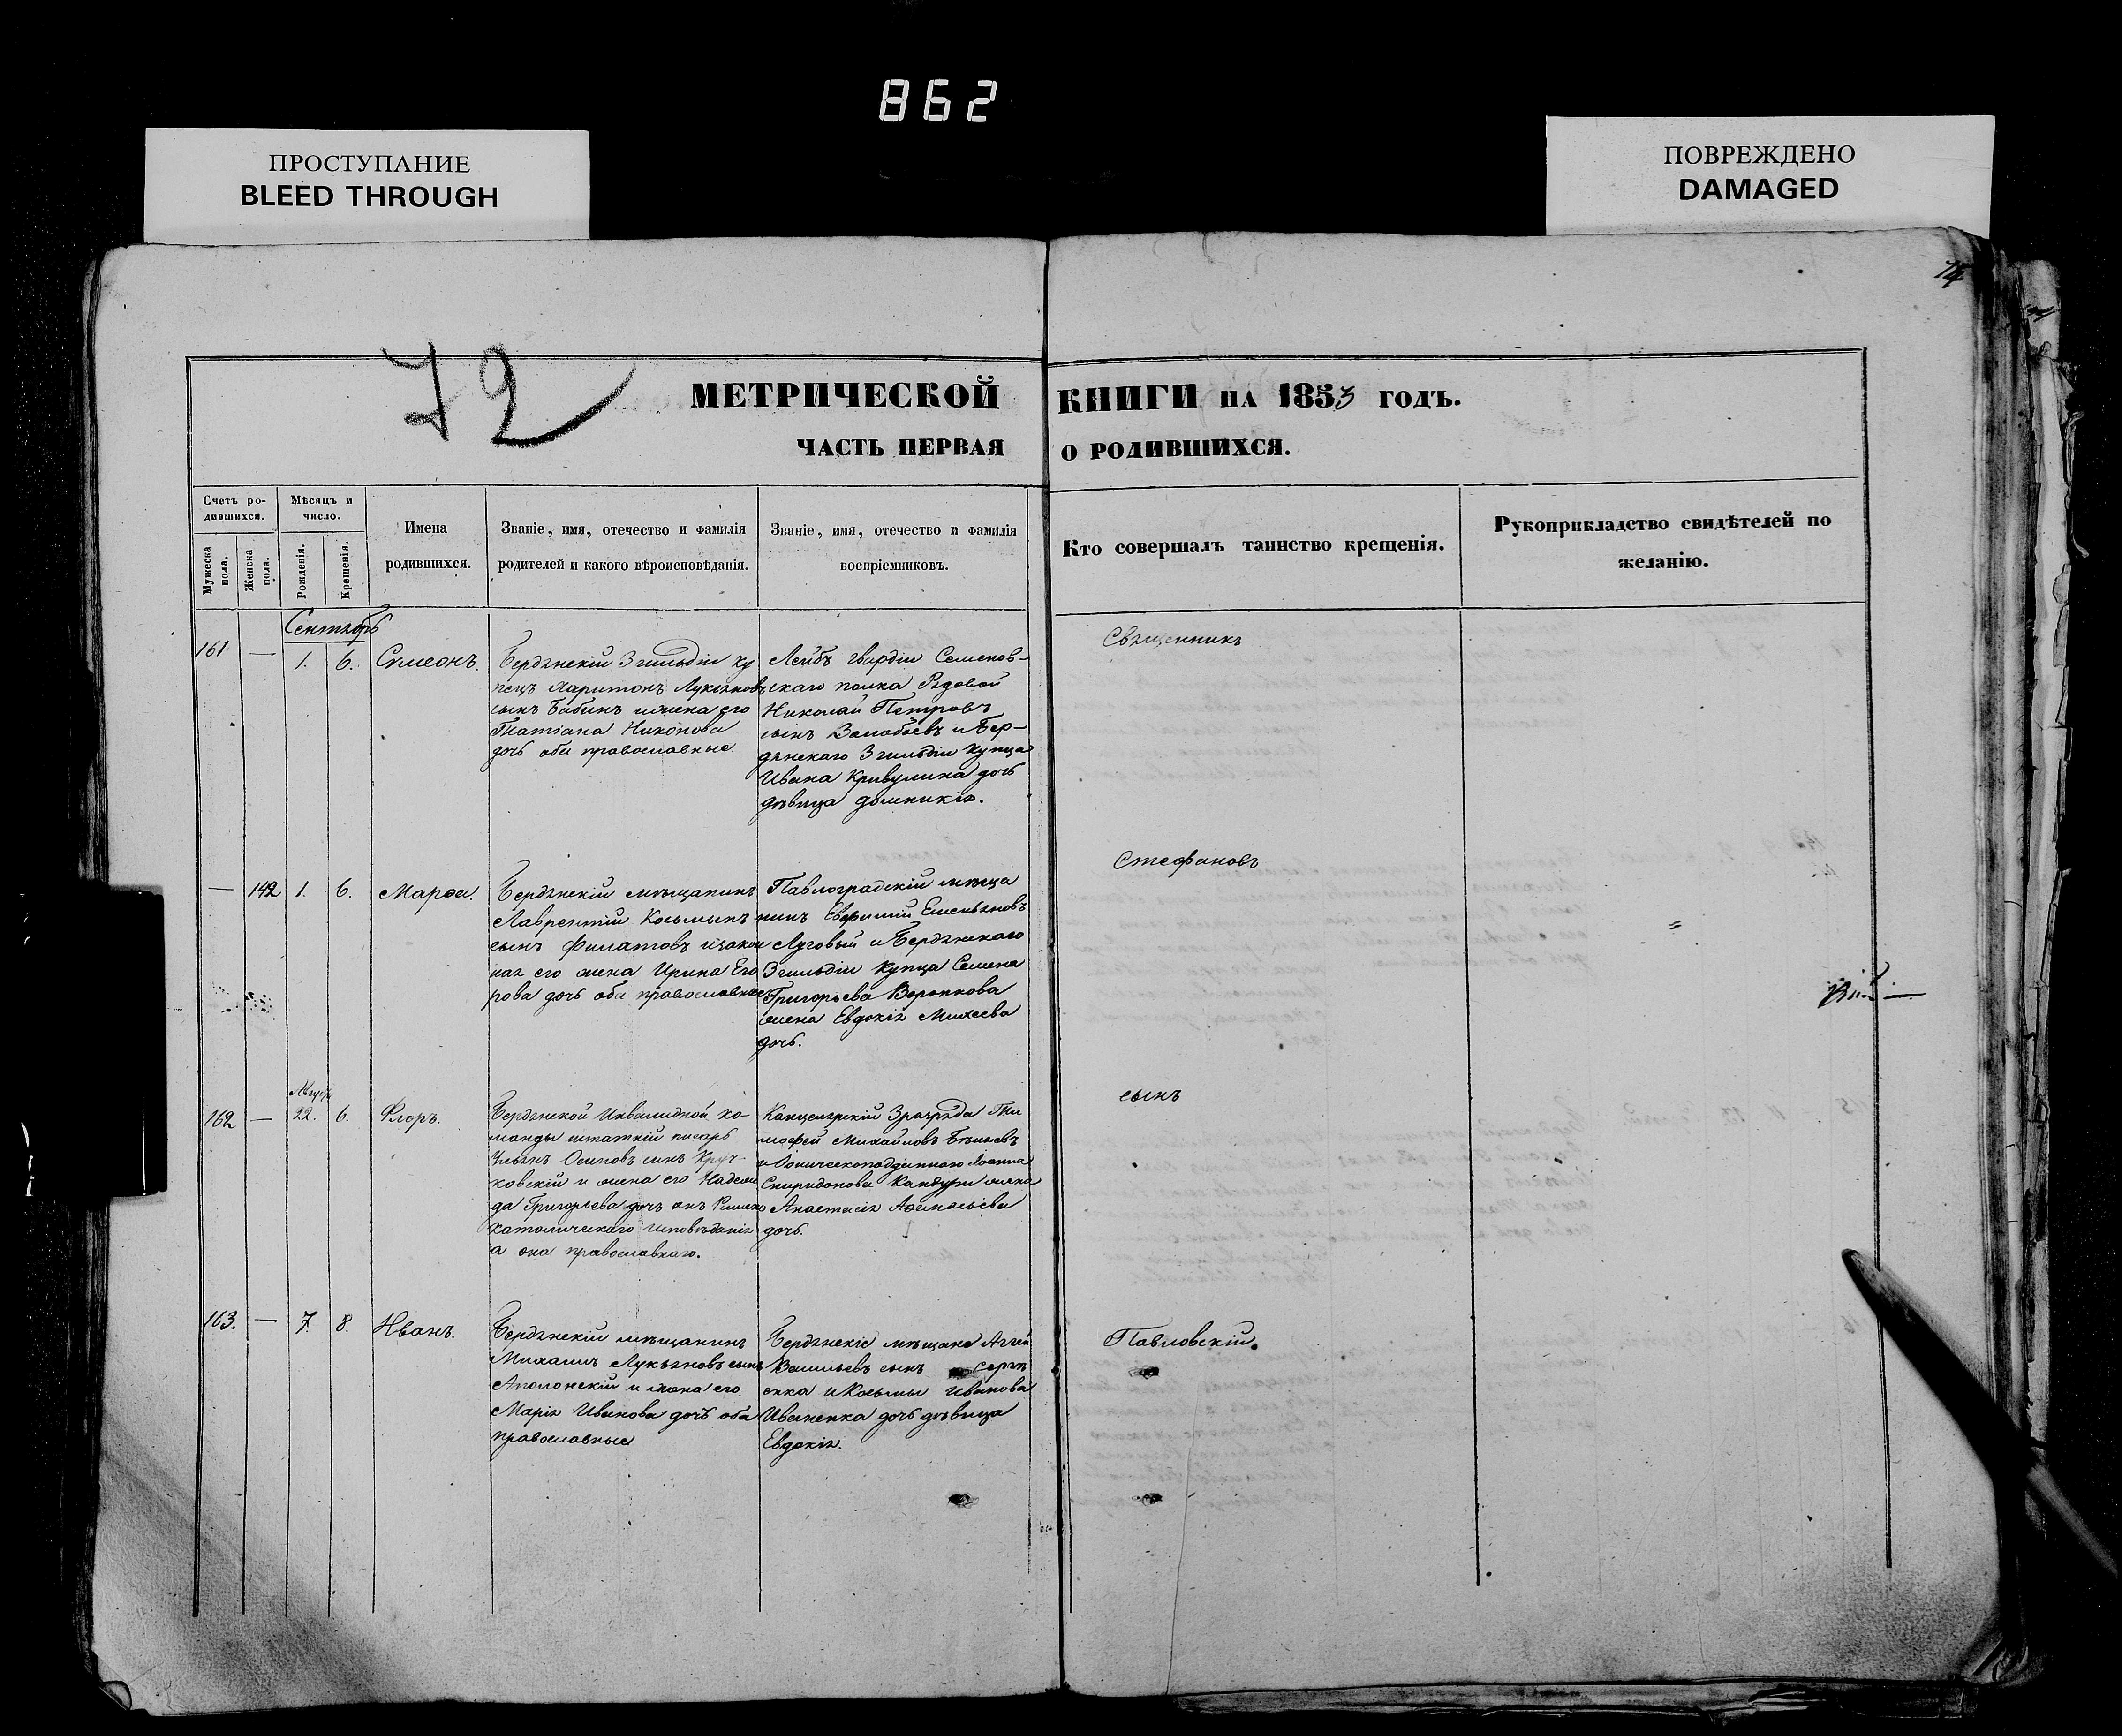 862
ПРОСТУПАНИЕ
BLEED THROUGH
ПОВРЕЖДЕНО
DAMAGED
72
МЕТРИЧЕСКОЙ КНИГИ НА 1853 ГОДЪ.
ЧАСТЬ ПЕРВАЯ О РОДИВШИХСЯ.
Счетъ ро-
дившихся.
Мужеска пола.
Женска пола.
Мѣсяцъ и
число.
Рожденія.
Крещенія.
Имена
родившихся.
Званіе, имя, отечество и фамилія
родителей и какого вѣроисповѣданія.
Званіе, имя, отечество и фамилія
воспріемниковъ.
Кто совершалъ таинство крещенія.
Рукоприкладство свидѣтелей по
желанію.
Сентябрь
161 — 1. 6. Сѵмеонъ.
Бердянскій 3 гильдіи ку
пецъ Харитонъ Лукьяновъ
сынъ Бабинъ и жена его
Татіана Никонова
дочь оба православные
Лейбъ гвардіи Семенов-
скаго полка Рядовой
Николай Петровъ
сынъ и Бер-
дянскаго 3 гильдіи купца
Ивана Кривулина дочь
дѣвица Домникія.
— 142 1. 6. Марѳа.
Бердянскій мѣщанинъ
Лаврентій Косьминъ
сынъ Филатовъ и закон
ная его жена Ирина Его
рова дочь оба православные
Павлоградскій мѣща
нинъ Евфимій Емельяновъ
Луговый и Бердянскаго
3 гильдіи купца Семена
Григорьева Воронкова
жена Евдокія Михеева
дочь.
Август
162 — 22. 6. Флоръ.
Бердянской Инвалидной ко-
манды штатній писарь
Осиповъ сынъ Круч-
ковскій и жена его Надеж
да Григорьева дочь онъ Римско
католическаго исповѣданія
а она православнаго.
Канцелярскій 3 разряда Ти
мофей Михайловъ
и Іоническоподданнаго Іоанна
Спиридонова жена
Анастасія Аѳанасьева
дочь.
163. — 7. 8. Иванъ.
Бердянскій мѣщанинъ
Михаилъ Лукьяновъ сынъ
Аполонскій и жена его
Марія Иванова дочь оба
православные
Бердянскіе мѣщане Аггей
Васильевъ сынъ Сергѣ
енка и Косьмы Иванова
Иваненка дочь дѣвица
Евдокія.
Священникъ
Стефановъ
сынъ
Павловскій.